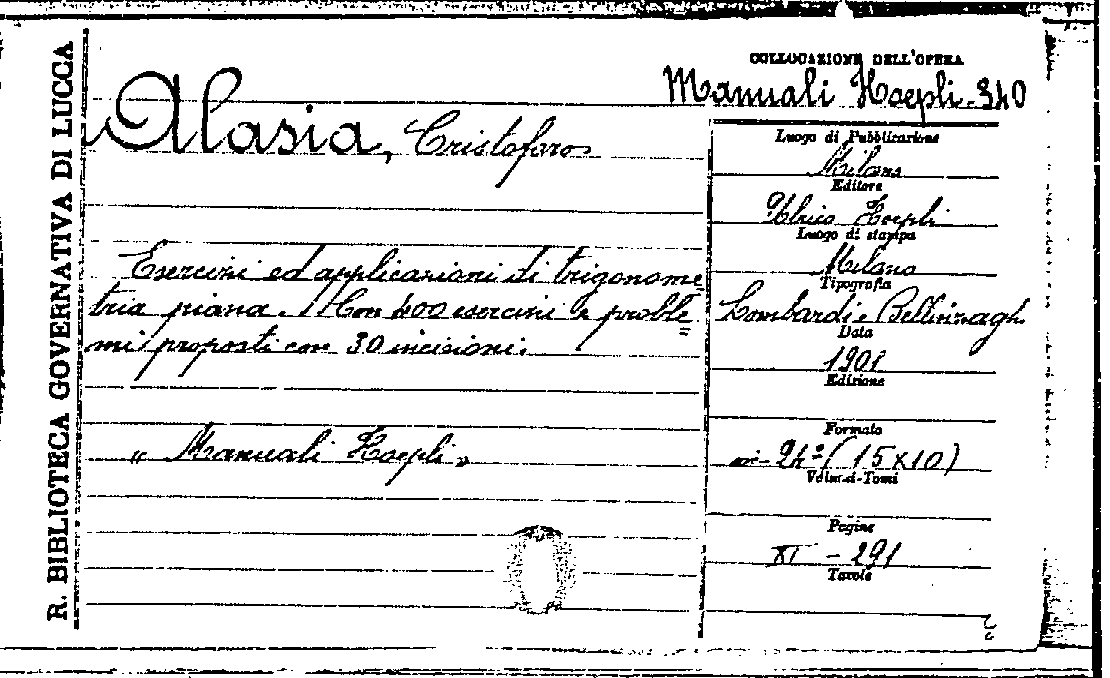 R. BIBLIOTECA GOVERNATIVA DI LUCCA
COLLOCAZIONE DELL'OPERA
Manuali Hoepli. 340
Alasia, Cristoforo
Esercizi ed applicazioni di trigonome
tria piana. Con 400 esercizi e proble
mi proposti con 30 incisioni.
„ Manuali Hoepli „
Luogo di Pubblicazione
Milano
Editore
Ulrico Hoepli
Luogo di stampa
Milano
Tipografia
Lombardi e Bellinzaghi
Data
1901
Edizione
Formato
in- 24° (15x10)
Volumi-Tomi
Pagine
XI - 291
Tavole